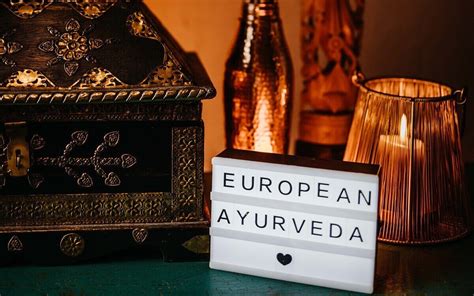 EUROPEAN
AYURVEDA
♥